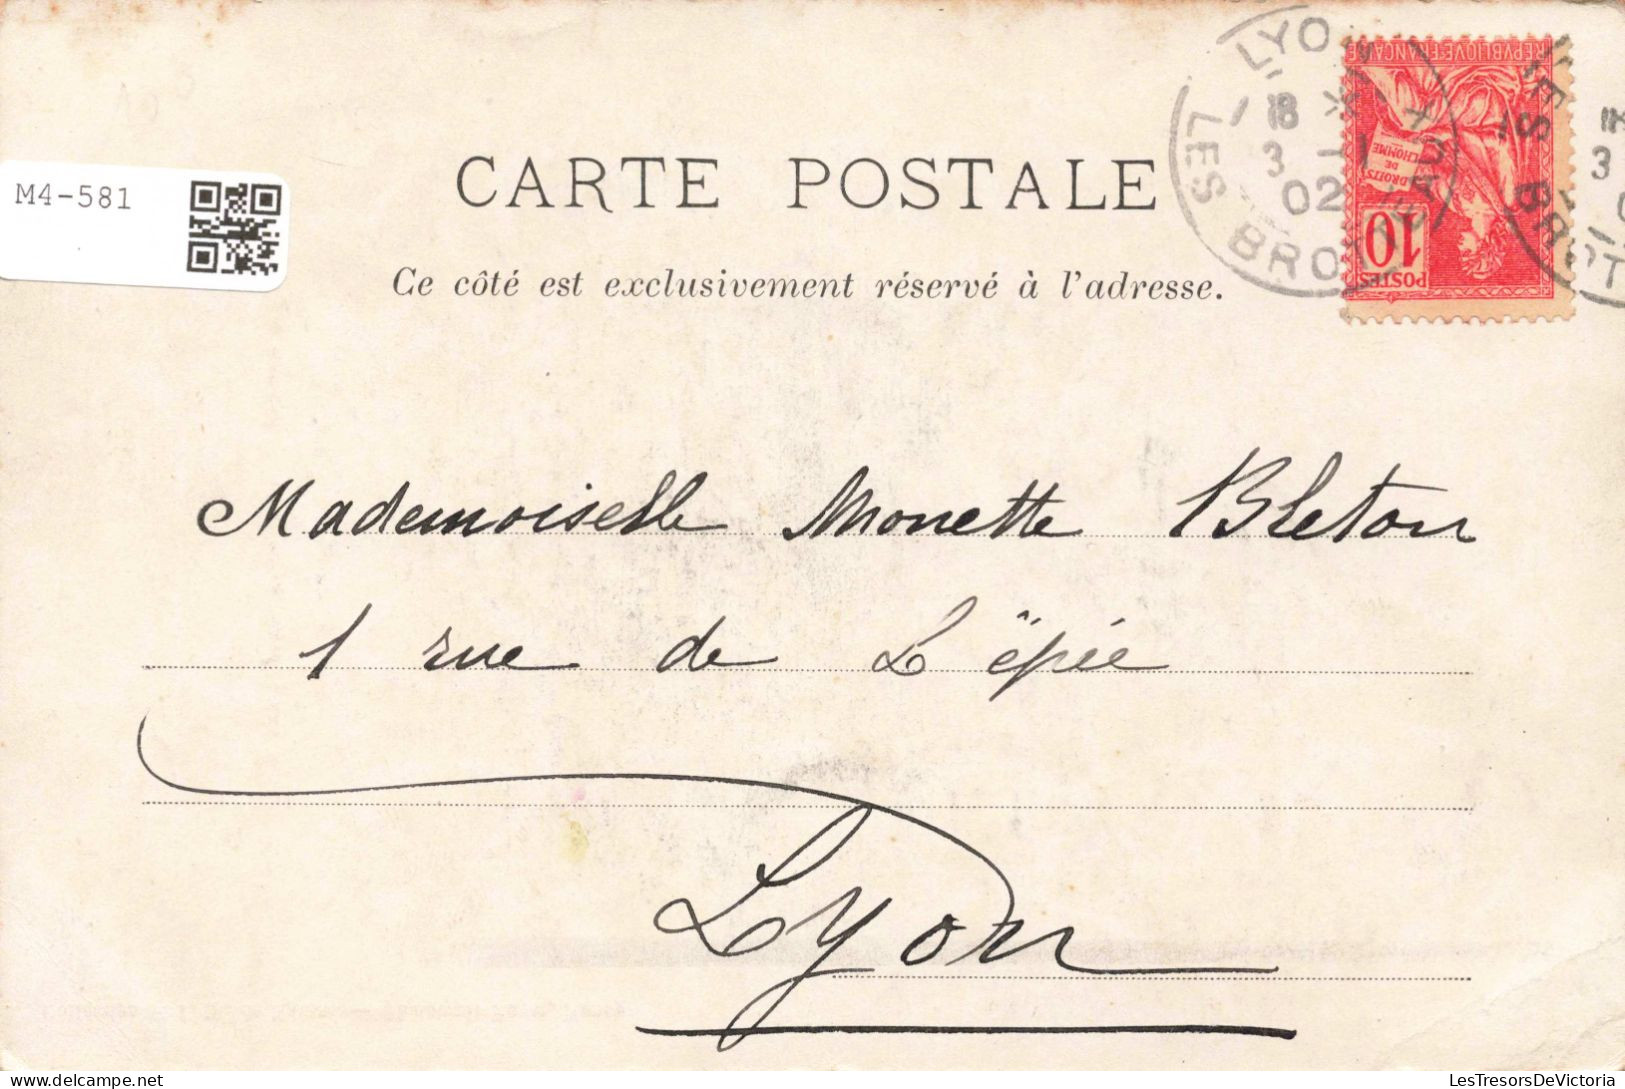 M4-581
CARTE POSTALE
Ce côté est exclusivement réservé à l'adresse.
LYON
LES BROTTEAUX
18
3 -1
02
REPVBLIQVE FRANÇAISE
DROITS
DE
L'HOMME
10
POSTES
Mademoiselle Monette Bleton
1 rue de L'épée
Lyon
LesTresorsDeVictoria